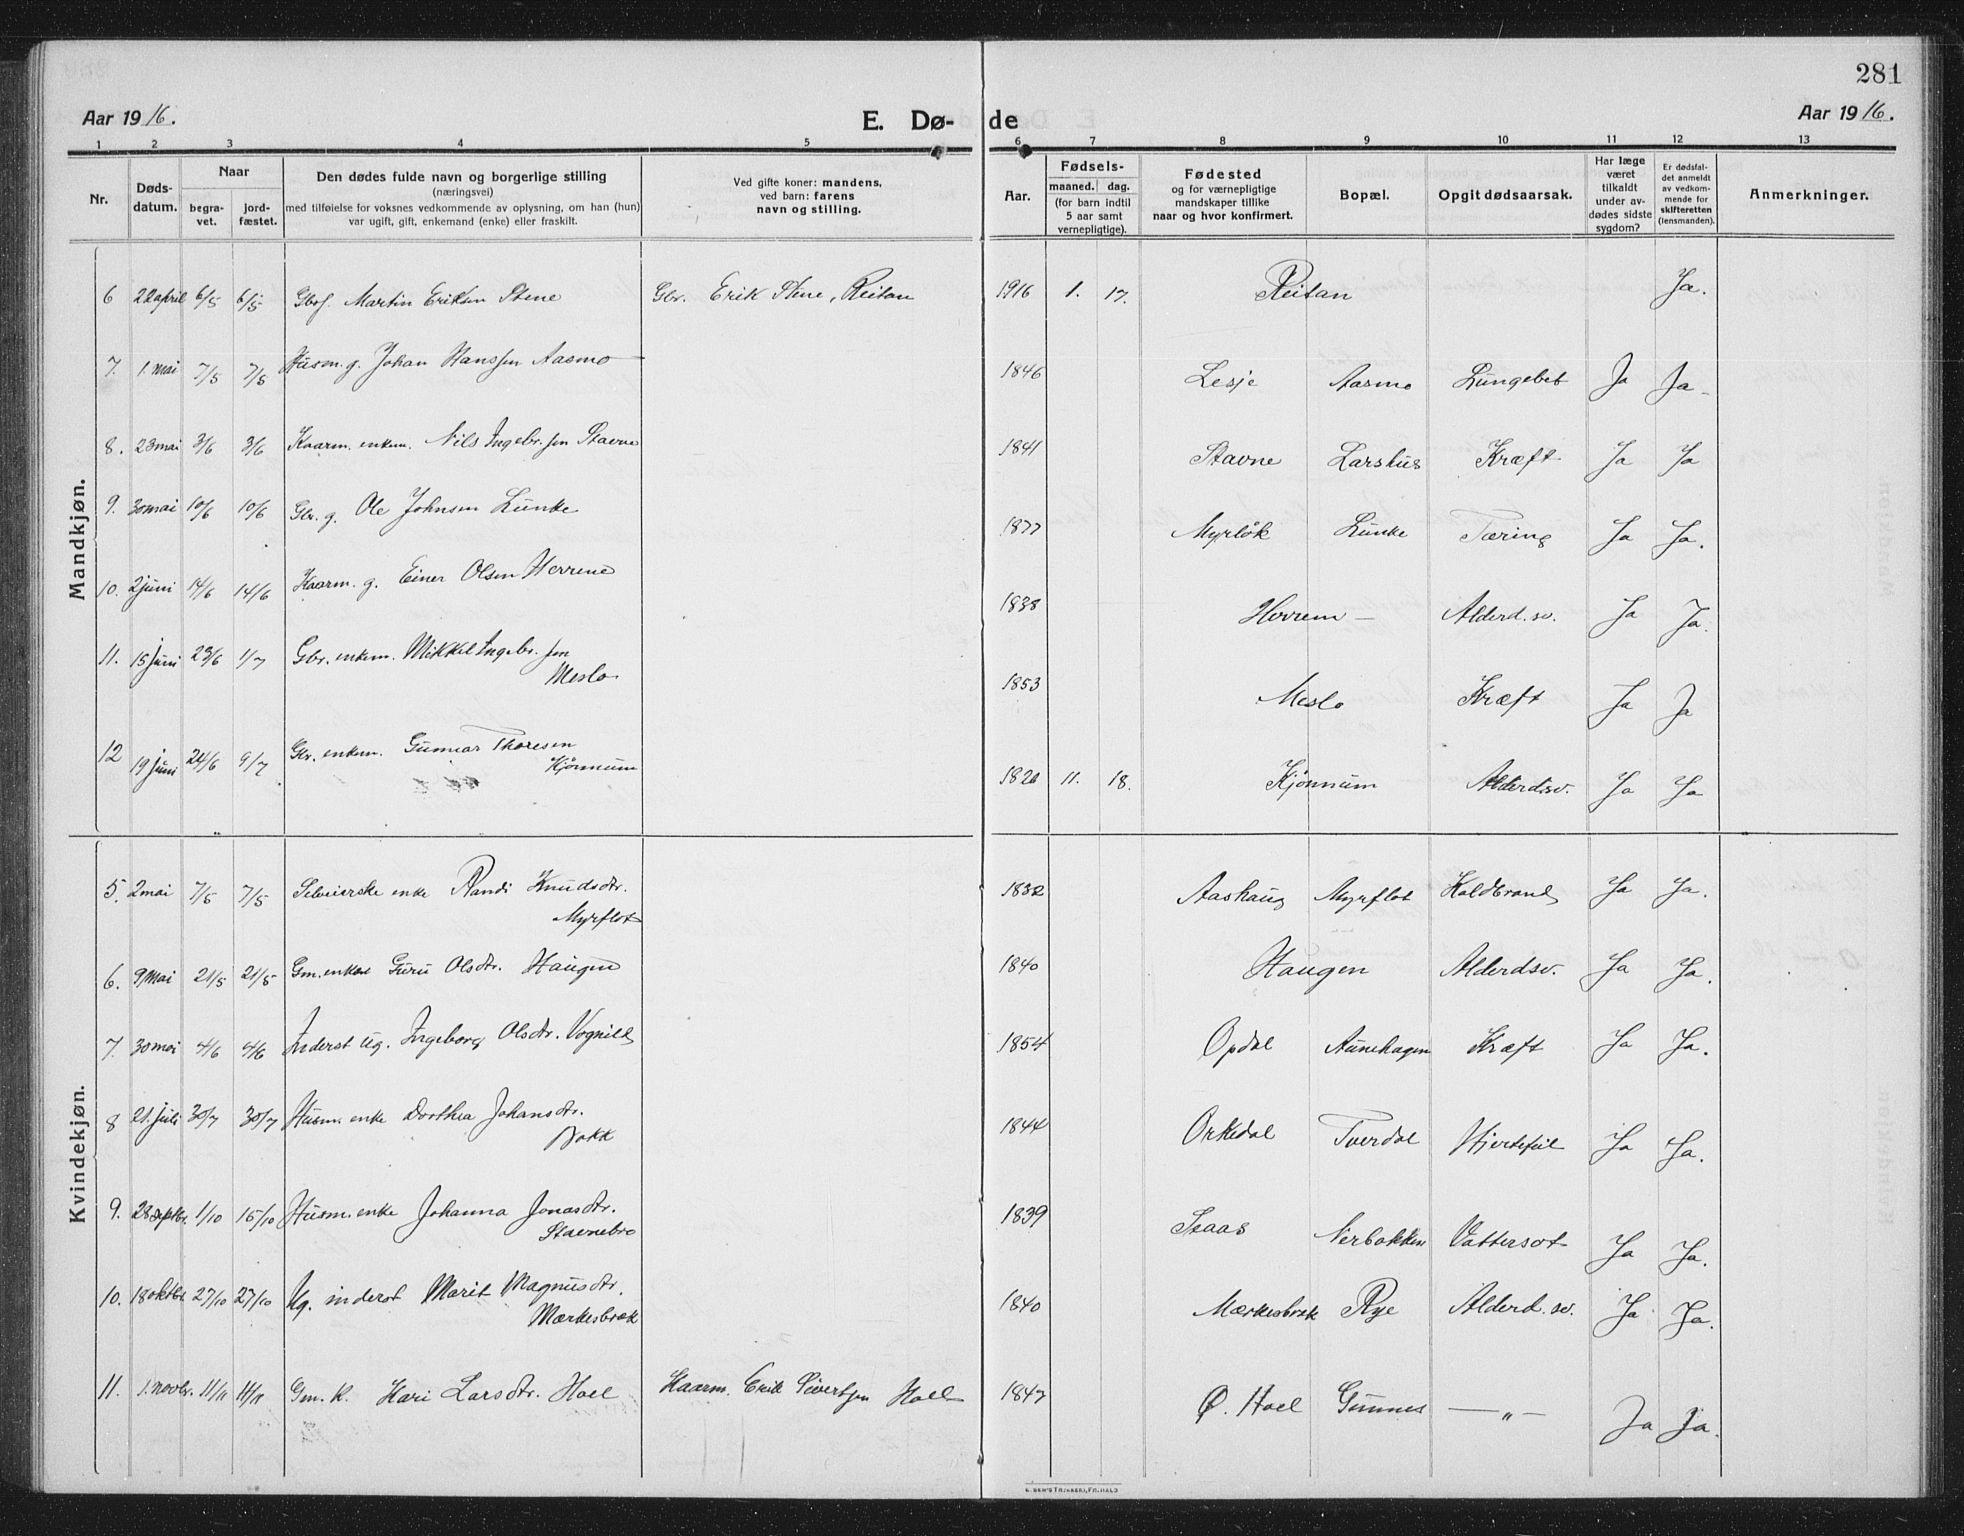 281
Aar 1916.
E. Dø-
de
Aar 1916.
1 2 3 4 5 6 7 8 9 10 11 12 13
Nr.
Døds-
datum.
Naar
begra-
vet.
jord-
fæstet.
Den dødes fulde navn og borgerlige stilling
(næringsvei)
med tilføielse for voksnes vedkommende av oplysning, om han (hun)
var ugift, gift, enkemand (enke) eller fraskilt.
Ved gifte koner: mandens,
ved barn: farens
navn og stilling.
Aar.
Fødsels-
maaned. dag.
(for barn indtil
5 aar samt
vernepligtige).
Fødested
og for værnepligtige
mandskaper tillike
naar og hvor konfirmert.
Bopæl.
Opgit dødsaarsak.
Har læge
været
tilkaldt
under av-
dødes sidste
sygdom?
Er dødsfal-
det anmeldt
av vedkom-
mende for
skifteretten
(lensmanden).
Anmerkninger.
Mandkjøn.
6 22 april 6/5 6/5 Martin Eriksen Stene Gbr. Erik Stene, Reitan 1916 1. 17. Reitan Ja.
7. 1. mai 7/5 7/5 Husm. g. Johan Hanssen Aasmo 1846 Lesje Aasmo Lungebet Ja Ja
8. 23 mai 3/6 3/6 Kaarm. enkem. Nils Ingebr.sen Stavne 1841 Stavne Larshus Kræft Ja Ja
9. 30 mai 10/6 10/6 Gbr. g. Ole Johnsen Lunke 1877 Myrløk Lunke Tæring Ja Ja.
10. 2 juni 14/6 14/6 Kaarm. g. Einer Olsen Horrem 1838 Horrem — Alderd.sv. Ja Ja.
11. 15 juni 23/6 1/7 Gbr. enkem. Mikkel Ingebr.sen
Meslo 1853 Meslo Kræft Ja Ja
12 19 juni 24/6 9/7 Gbr. enkem. Gunnar Thoresen
Kjønnum 1820 11. 18. Kjønnum Alderdsv. Ja Ja
Kvindekjøn.
5. 2 mai 7/5 7/5 enke Randi Knudsdtr.
Myrflot 1832 Aashaug Myrflot Koldbrand Ja Ja.
6. 9 mai 21/5 21/5 Gm. enke Guru Olsdtr. Haugen 1840 Haugen Alderdsv. Ja Ja.
7. 30 mai 4/6 4/6 Inderst ug. Ingeborg Olsdtr. Vognild 1854 Opdal Aunehagen Kræft Ja Ja.
8 21. juli 30/7 30/7 Husm. enke Dorthea Johansdtr.
Bakk 1844 Orkedal Tverdal Hjertefeil Ja Ja.
9. 28 septbr. 1/10 15/10 Husm. enke Johanna Jonasdtr.
Stavnebro 1839 Isaas Nerbakken Vattersot Ja Ja.
10. 18 oktbr. 27/10 27/10 Ug. inderst Marit Magnusdtr.
Mærkesbræk 1840 Mærkesbræk Rye Alderd.sv. Ja Ja.
11. 1. novbr. 11/11 11/11 Gm. k. Kari Larsdtr. Hoel Kaarm. Erik Sivertsen Hoel 1847 Ø. Hoel Gumnes — „ — Ja Ja.
E. SEM'S TRYKKERI, FR.HALD